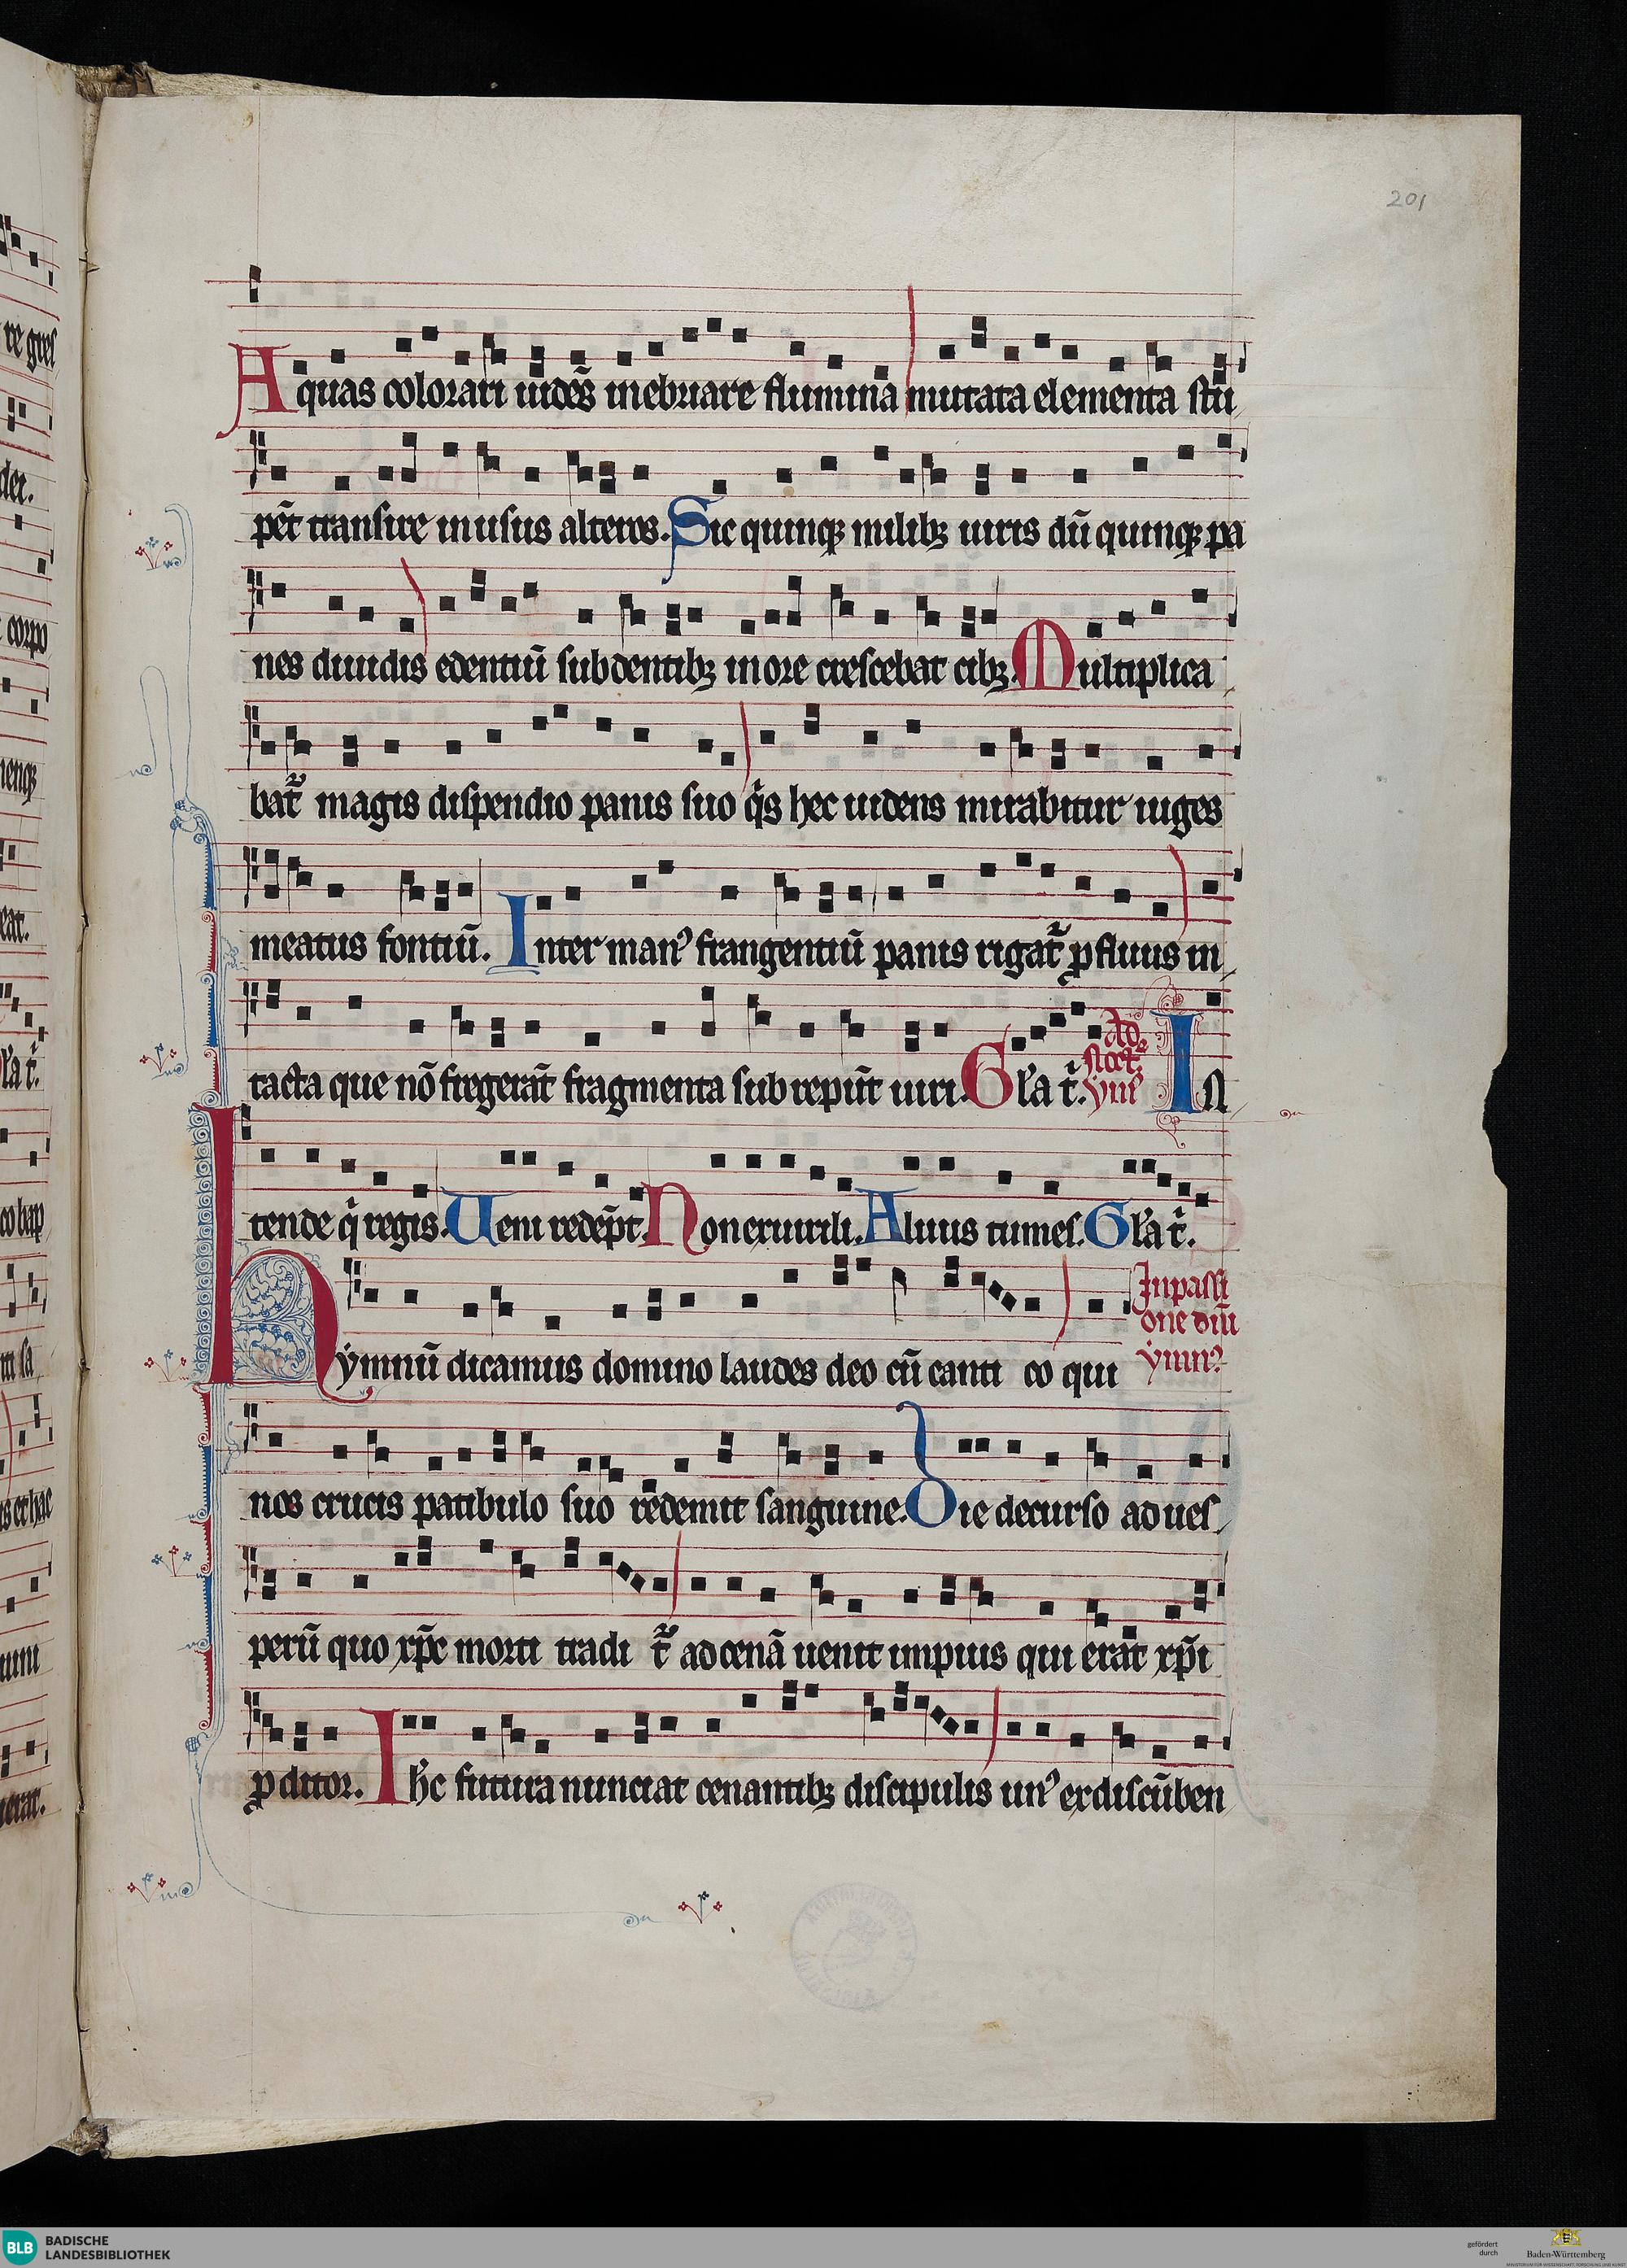 201
Aquas colorari uidēs inebriare flumina mutata elementa stu
pēt transire in usus alteros. Sic quinqꝫ milibꝫ uiris dū quinqꝫ pa
nes diuidis edentiū sub dentibꝫ in ore crescebat cibꝫ. Multiplica
bat̄ magis dispendio panis suo q̇s hec uidens mirabitur iuges
meatus fontiū. Inter man⁹ frangentiū panis rigat̄ ꝑfluus in
tacta que nō fregerāt fragmenta sub repūt uiri. Gl̄a t̄. Ad noct. ymꝰ In
tende q̇ regis. Ueni redēpt. Non ex uirili. Aluus tumes. Gl̄a t̄.
Hymnū dicamus domino laudes deo cū canti co qui
In passi
one dn̄i
ymn⁹
nos crucis patibulo suo redemit sanguine. Die decurso ad ues
perū quo xp̄c morti tradi t̄ ad cenā uenit impius qui erat xp̄i
ꝓditor. Ih̄c futura nunciat cenantibꝫ discipulis un⁹ ex discūben
re gres
corpo
ienqꝫ
co bap
m sa
is et hac
BLB BADISCHE
LANDESBIBLIOTHEK
gefördert
durch
Baden-Württemberg